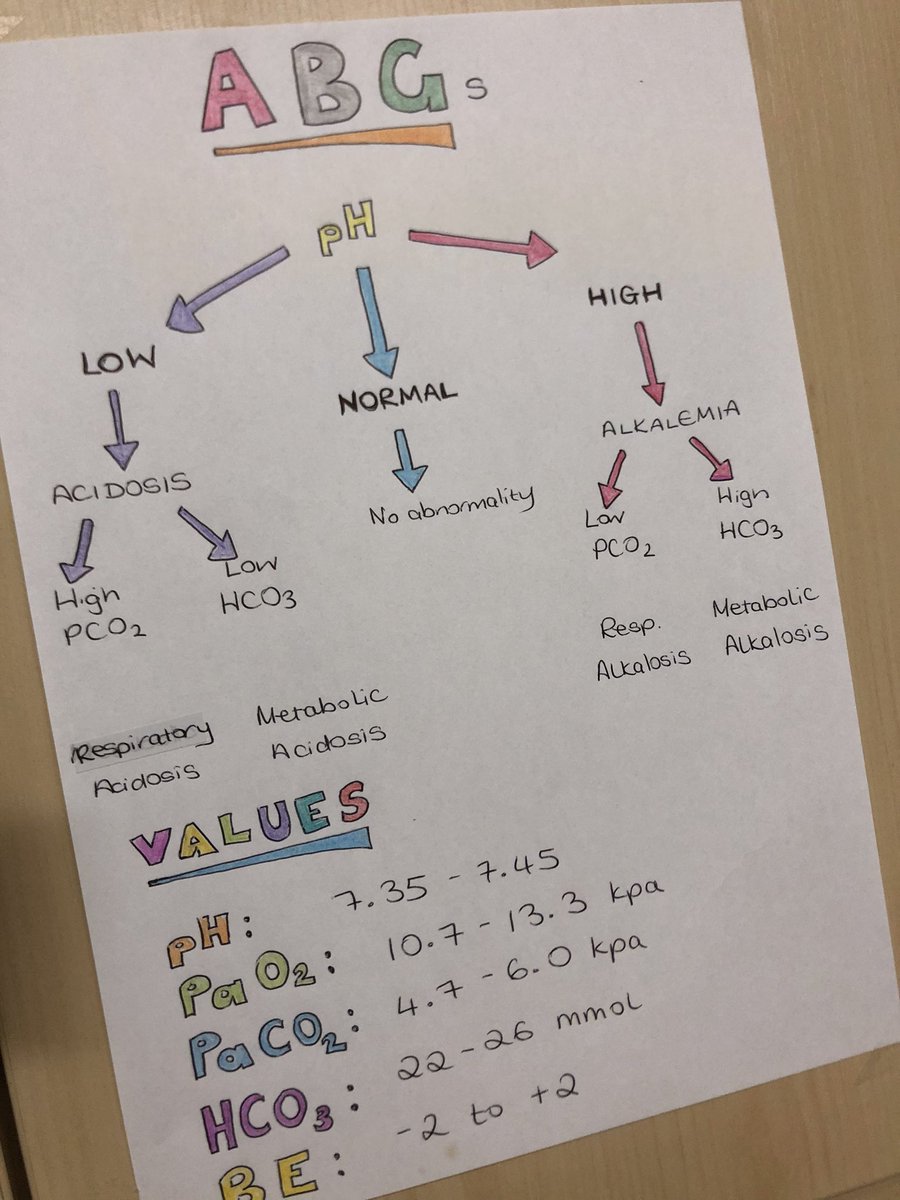 ABGs
pH
LOW
NORMAL
HIGH
ACIDOSIS
No abnormality
ALKALEMIA
High
PCO2
Low
HCO3
Low
PCO2
High
HCO3
Respiratory
Acidosis
Metabolic
Acidosis
Resp.
Alkalosis
Metabolic
Alkalosis
VALUES
pH: 7.35 - 7.45
PaO2: 10.7 - 13.3 kpa
PaCO2: 4.7 - 6.0 kpa
HCO3: 22-26 mmol
BE: -2 to +2